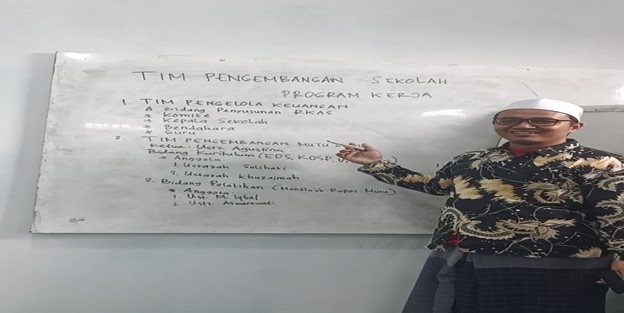 TIM PENGEMBANGAN SEKOLAH
PROGRAM KERJA
1. TIM PENGELOLA KEUANGAN
A Bidang Penyusunan RKAS
* Komite
* Kepala Sekolah
* Bendahara
* Guru
2. TIM PENGEMBANGAN MUTU
Ketua : Ustz. Agustina
Bidang Kurikulum (EDS, KOSP,
* Anggota
1. Ustazah Sulihati
2. Ustazah Khuzaimah
2. Bidang Pelatihan (Rapor Mutu)
* Anggota
1. Ust. M. Iqbal
2. Ustz